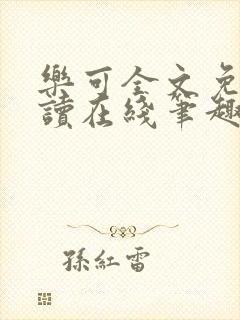 樂可全文免
讀在綫筆趣
孫紅雷